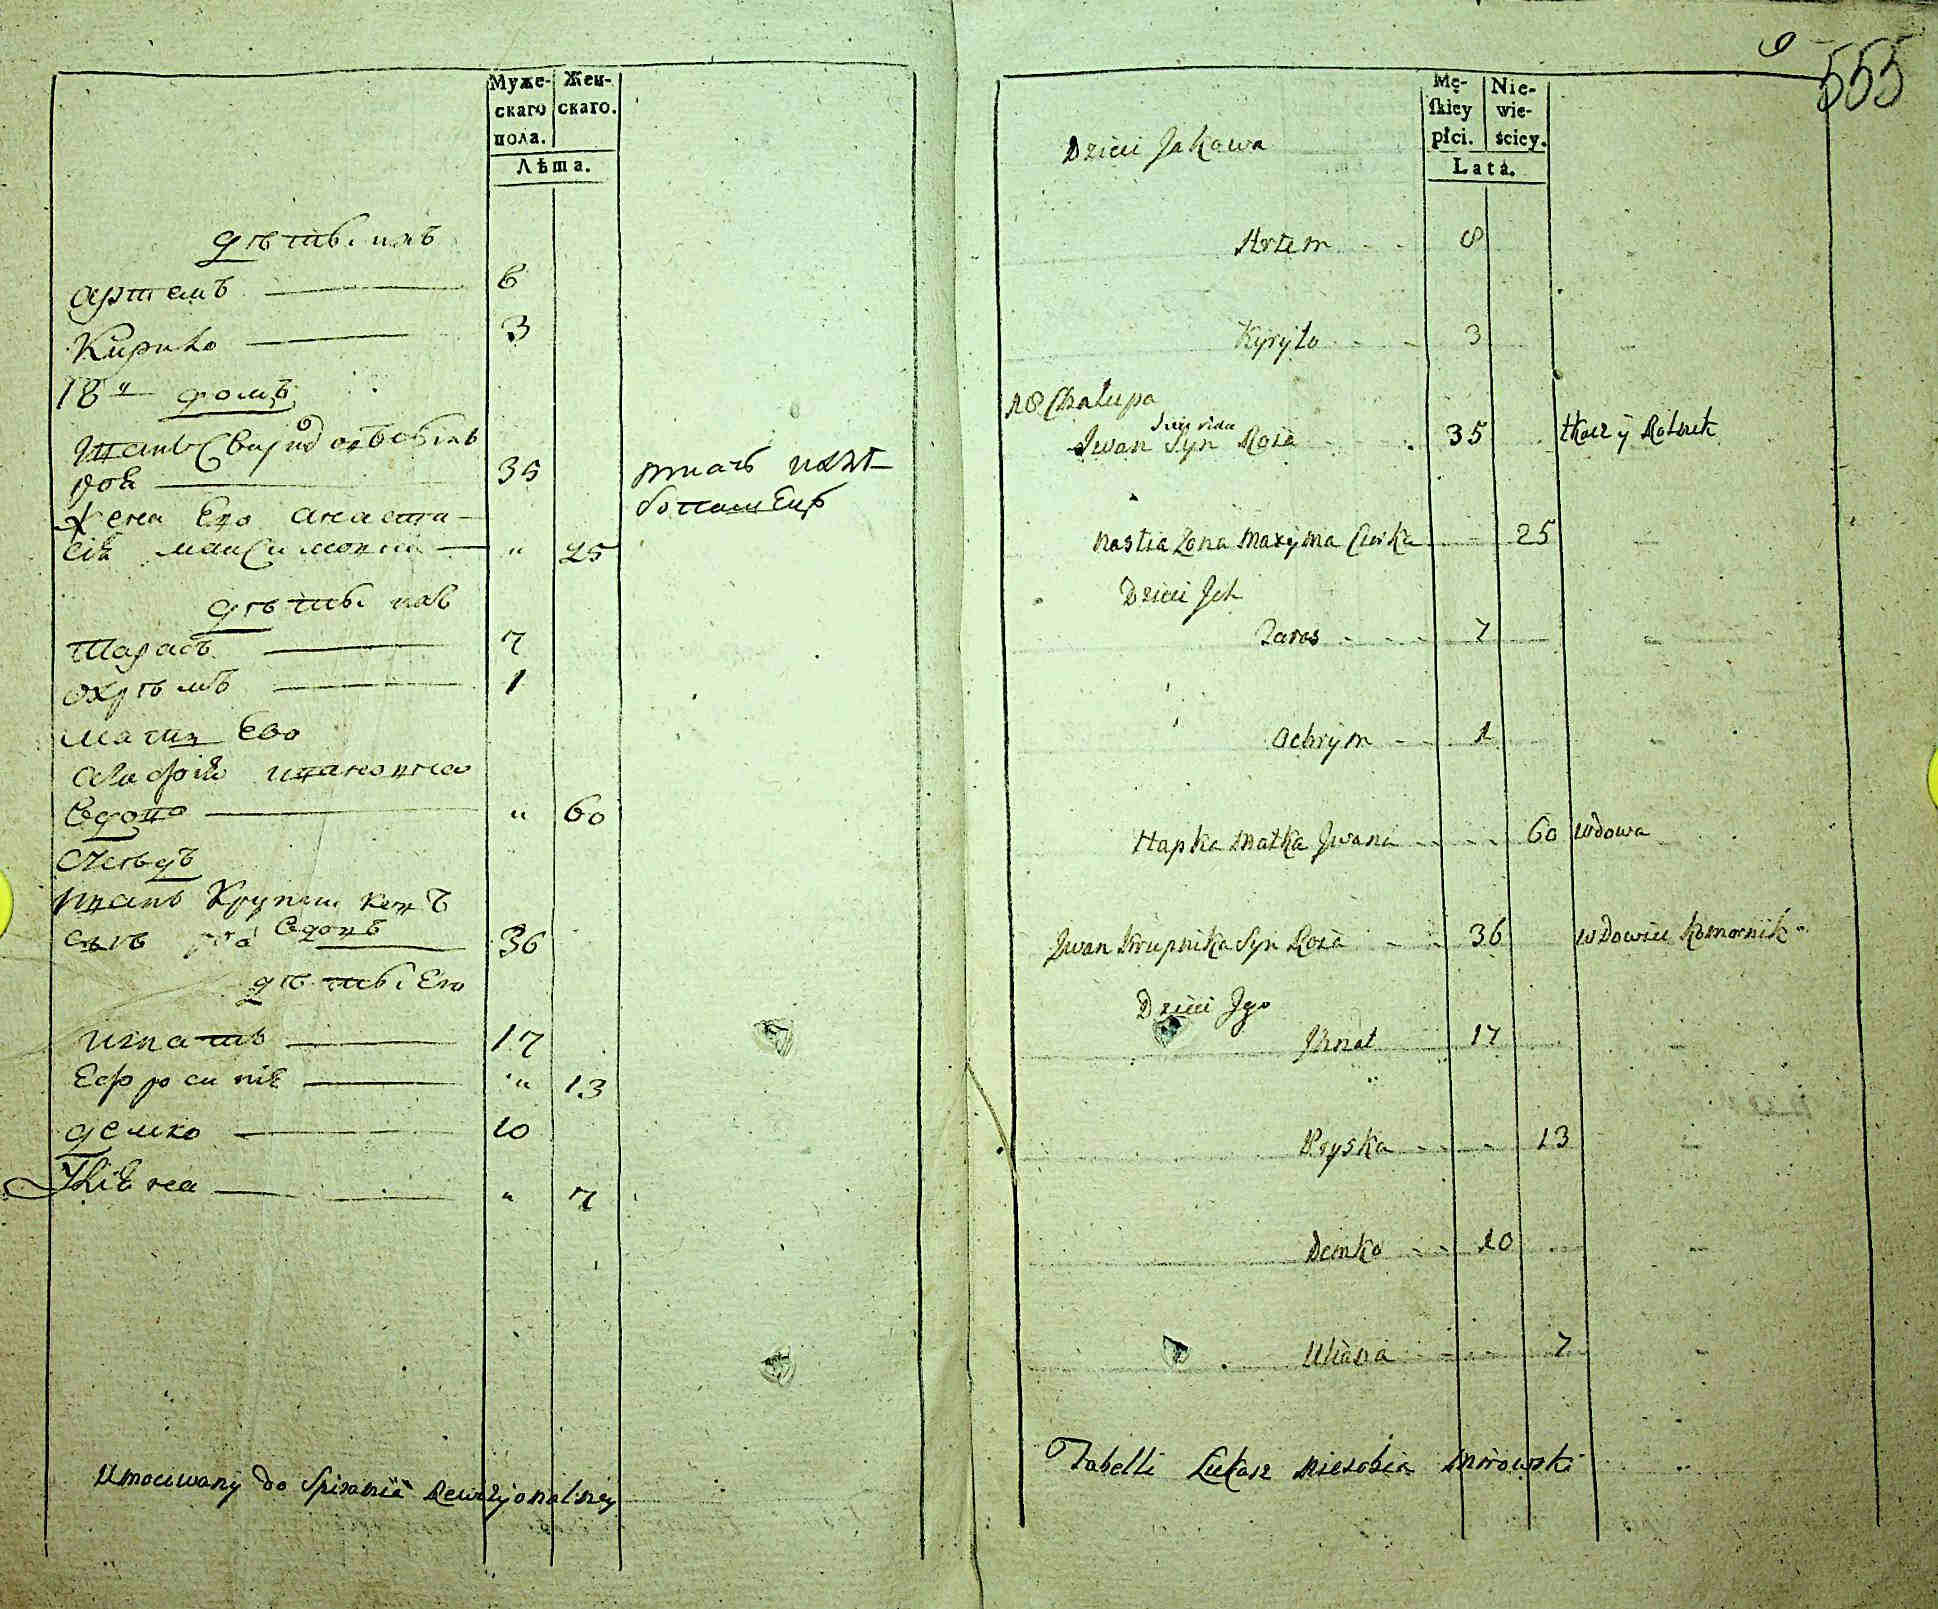 Муже-
скаго
пола.
Жен-
скаго.
Лѣта.
дѣти ихъ
артемъ 6
Кирило 3
18й домъ
Иванъ 35
ткачъ
Жена Его анаста-
сія максимова " 25
дѣти ихъ
Тарасъ 7
охрѣмъ 1
мати Ево
агафія иванова
вдова " 60
сусѣдъ
Иванъ
сынъ вдовъ 36
дѣти Его
игнатъ 17
Ефросинія " 13
демко 10
" 7
Umocowany do Spisania Rewizyonalney
9
555
Mę-
skiey
płci.
Nie-
wie-
ściey.
Lata.
Dzieci Jakowa
Artem 8
Kyryło 3
18 Chałupa
Iwan Syn 35 tkacz y Rolnik
Nastia Zona Maxyma Curka 25
Dzieci Jch
Taras 7
Ochrym 1
Hapka Matka Jwana 60 wdowa
Jwan Krupnika Syn 36 wdowiec Komornik
Dzieci Jgo
Jhnat 17
Pryska 13
Demko 10
Uliana 7
Tabelli Łukasz